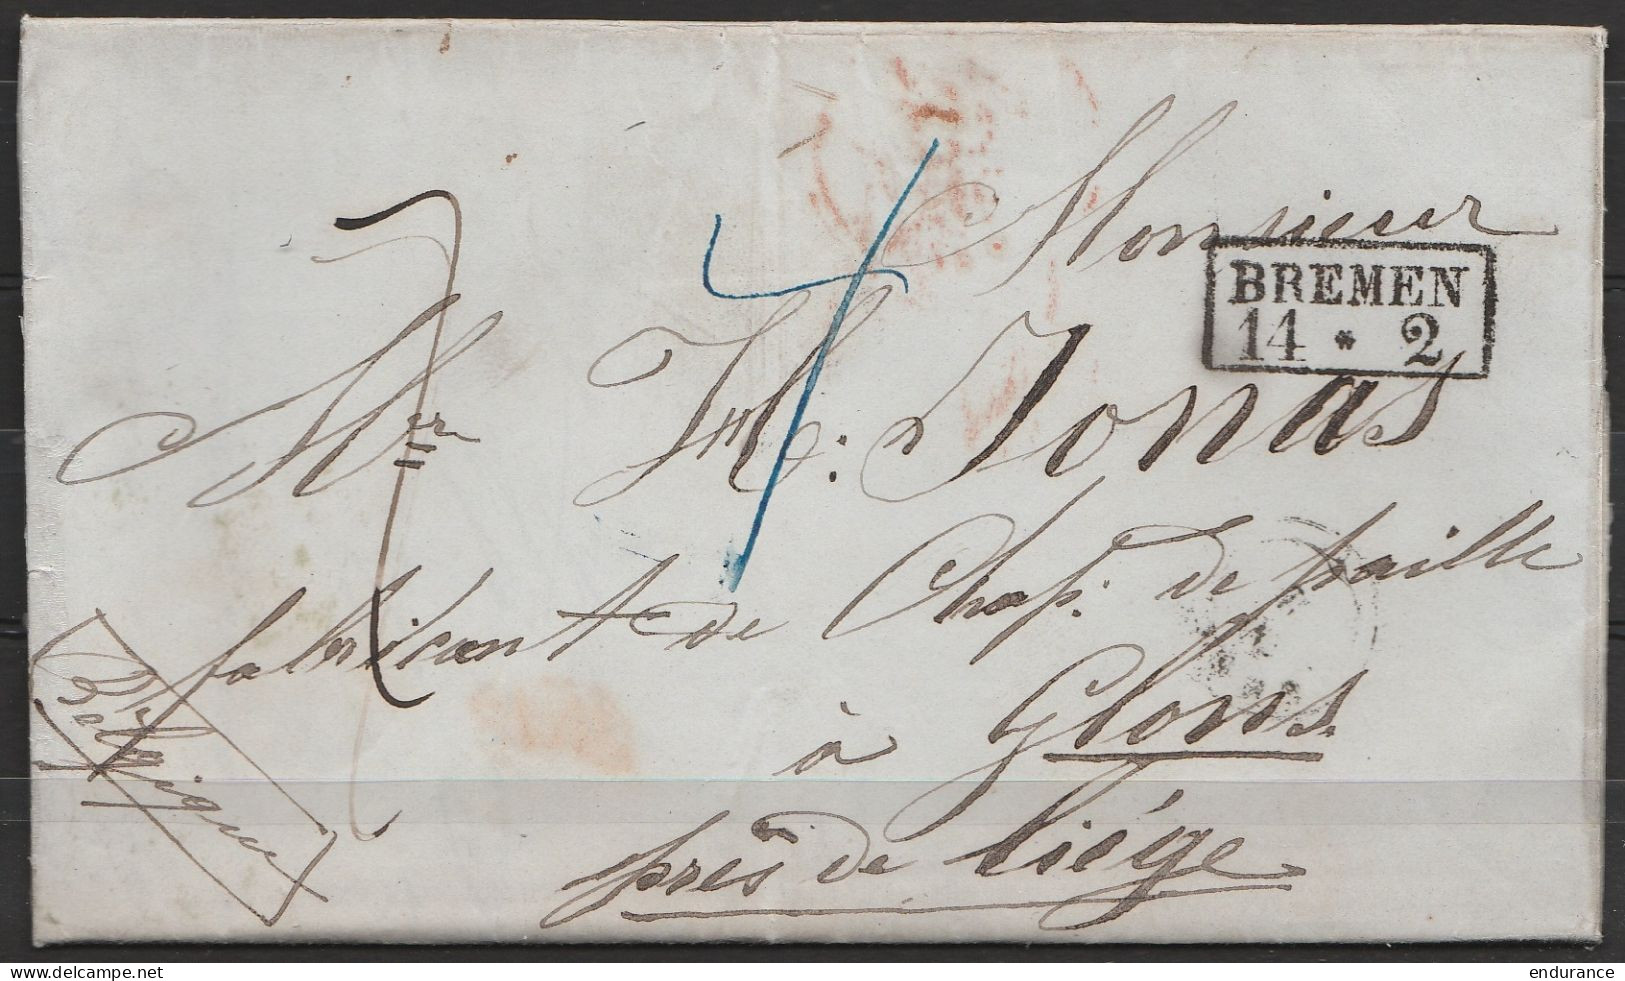 Monsieur
BREMEN
14 * 2
Mr H: Jonas
fabricant de Chap: de paille
à Glons.
près de Liége
Belgique
7
endurance